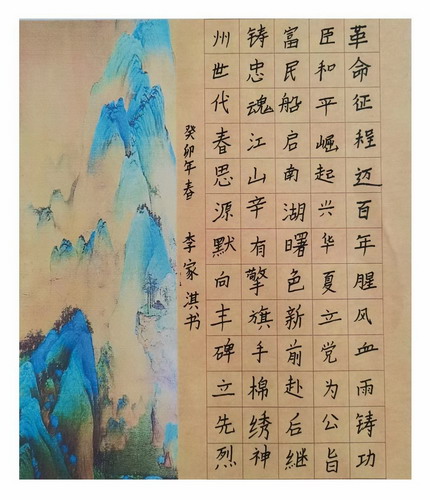 革命征程迈百年腥风血雨铸功
臣和平崛起兴华夏立党为公旨
富民船启南湖曙色新前赴后継
铸忠魂江山辛有擎旗手棉绣神
州世代春思源默向丰碑立先烈
癸卯年春 李家淇书